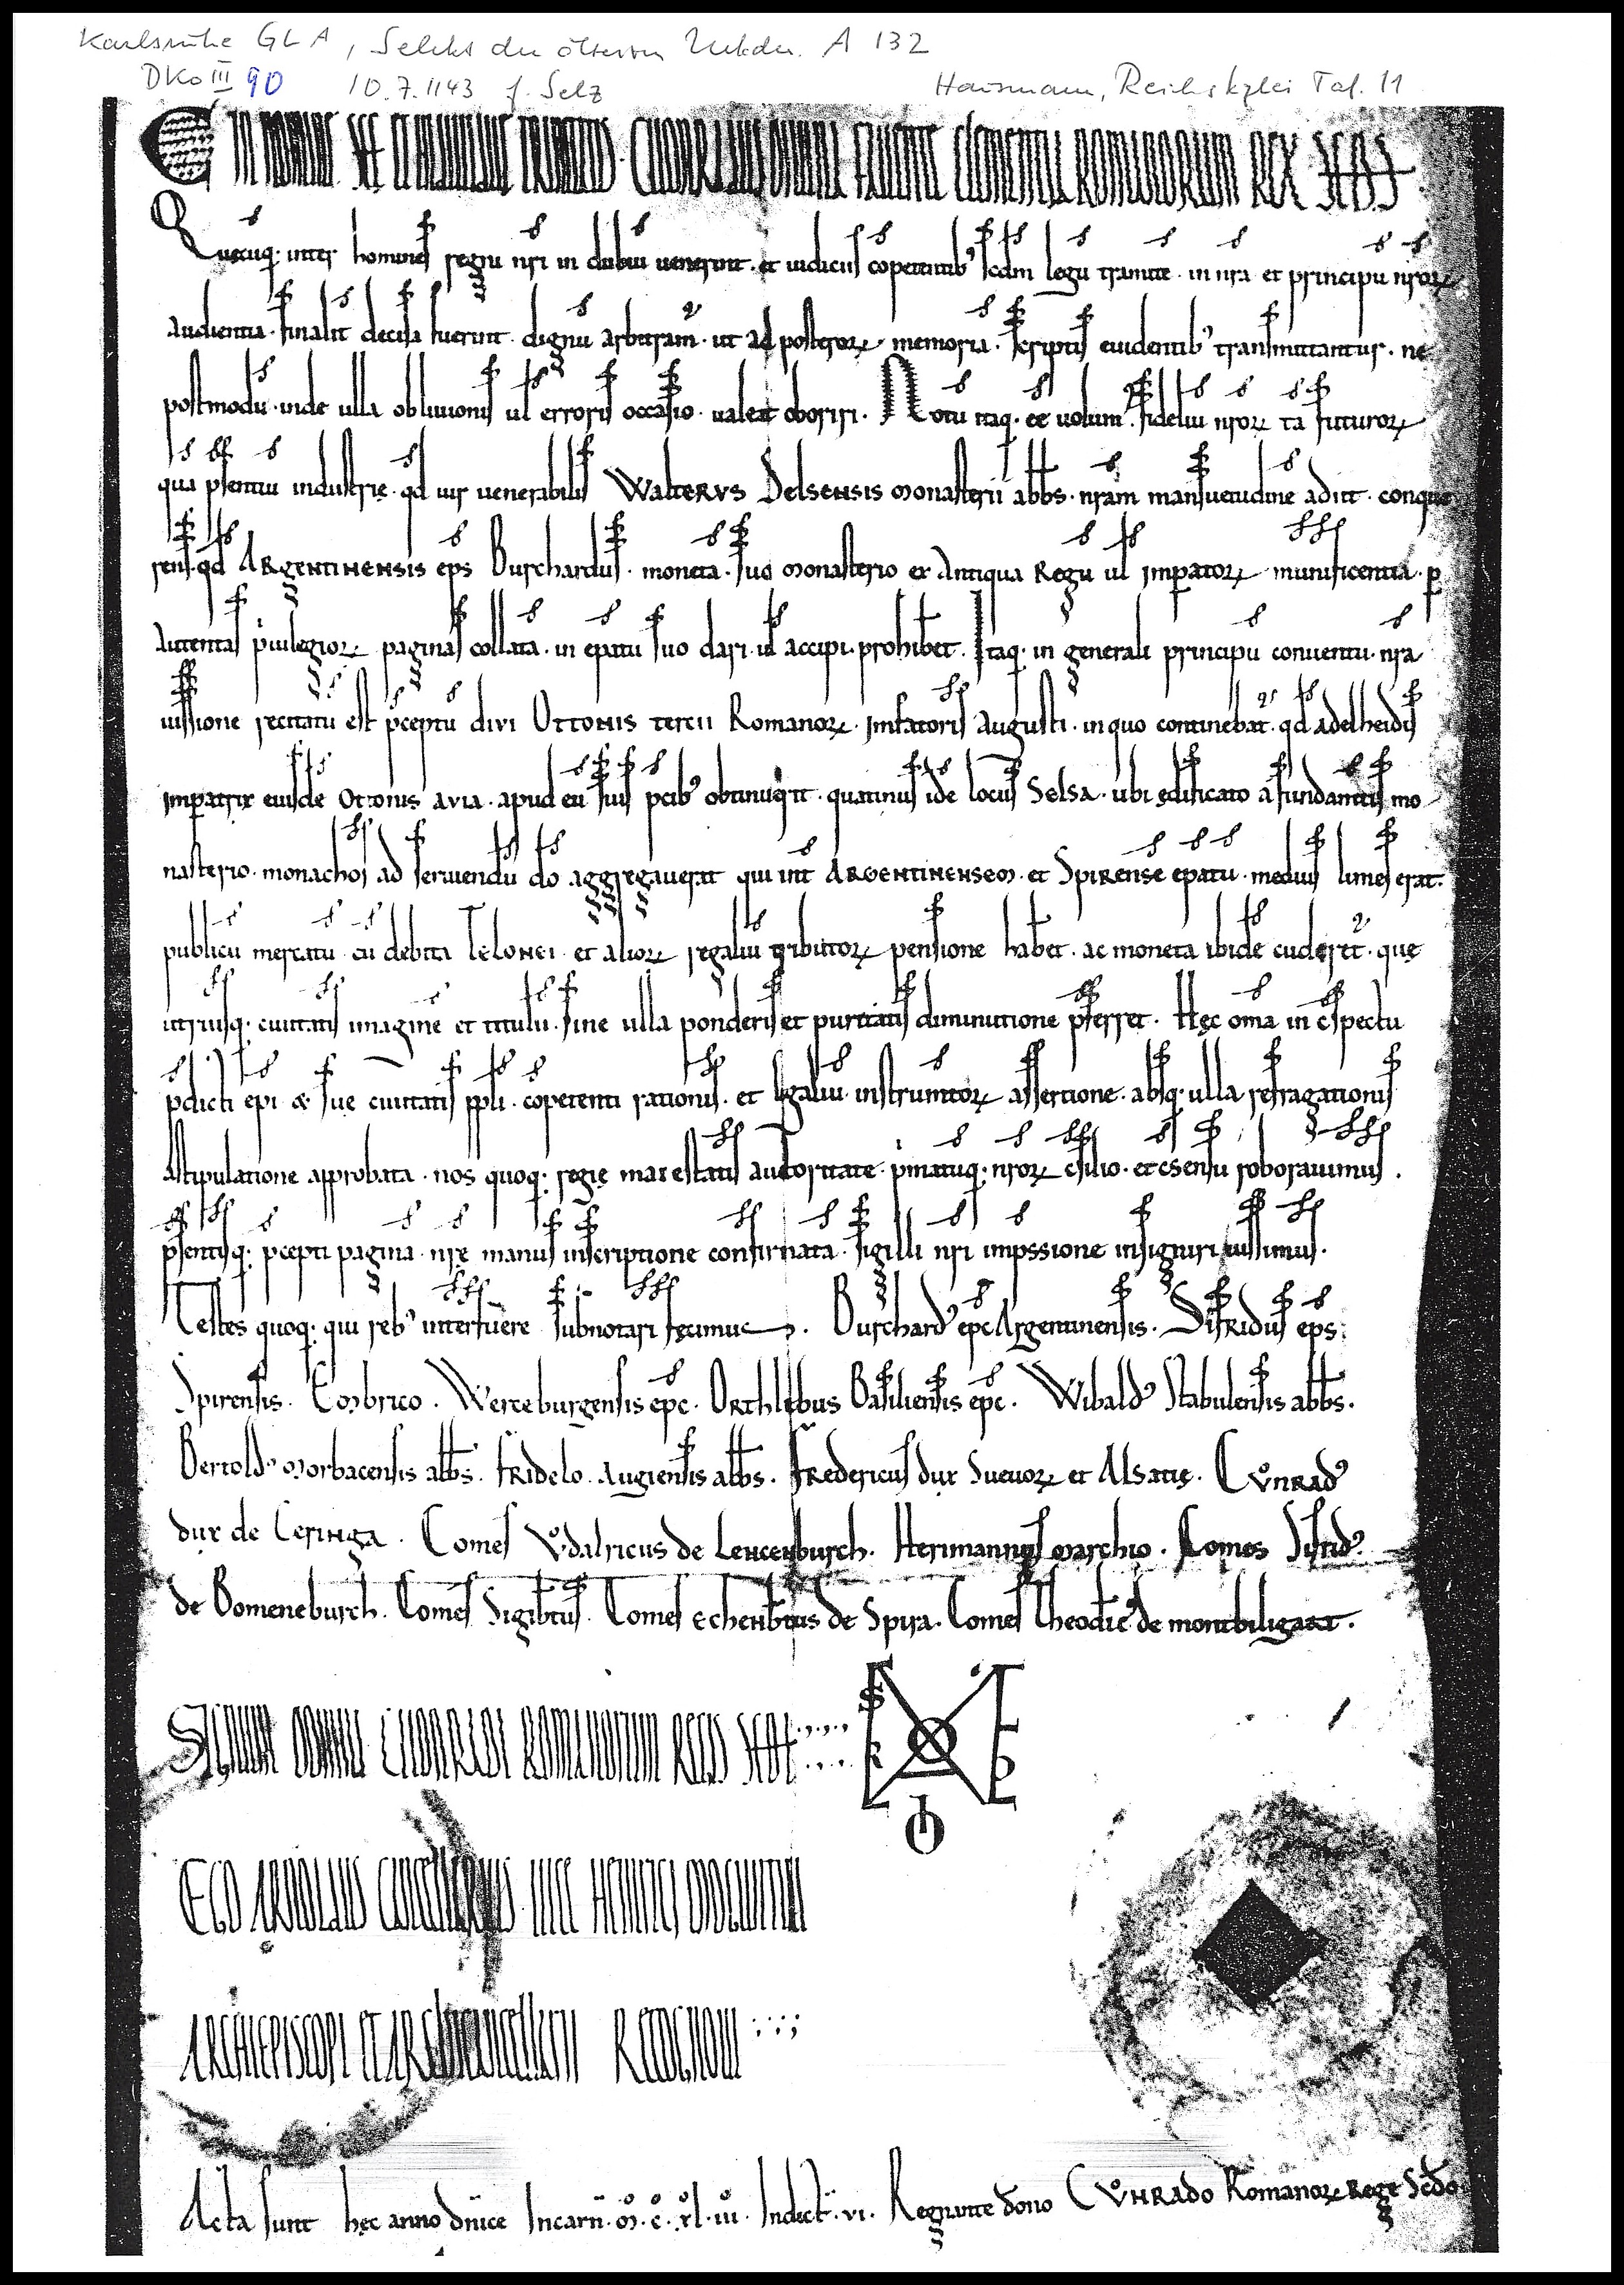 Karlsruhe GLA, Selekt der älteren Urkdn. A 132
DKo III 90 10.7.1143 f. Selz Hausmann, Reichskzlei Taf. 11
C IN NOMINE SCE ET INDIVIDUE TRINITATIS. CUONRADUS DIVINA FAVENTE CLEMENTIA ROMANORUM REX SCDS
Quecuq; inter homines regnu nri in dubiu uenerint. et iudiciis copetentib' scdm legu tramite. in nra et principu nroꝝ
audientia. finalit decisa fuerint. dignu arbitram'. ut ad posteroꝝ memoria. scriptis euidentib' transmittantur. ne
postmodu. inde ulla obliuionis ul erroris occasio. ualeat oboriri. Notu itaq; ee uolum'. fideliu nroꝝ ta futuroꝝ
qua psentiu industrię. qd uir uenerabilis Walterus Selsensis monasterii abbs. nram mansuetudine adiit. conque
rens. qd Argentinensis eps Burchardus. moneta. suo monasterio ex antiqua regu ul imperatoꝝ munificentia. p
autentas priuilegioꝝ paginas collata. in epatu suo dari. ul accipi. prohibet. Itaq; in generali principu conuentu. nra
iussione recitatu est pceptu divi Ottonis tercii Romanoꝝ. Impatoris augusti. in quo continebat'. qd adelheidis
imperatrix eiusde Ottonis avia. apud eu suis pcib' obtinuerit. quatinus ide locus Selsa. ubi ędificato a fundamtis mo
nasterio. monachos ad seruiendu do aggregauerat qui int Argentinensem. et Spirense epatu. medius limes erat.
publicu mercatu. cu debita Telonei. et alioꝝ regaliu tributoꝝ pensione habet. ac moneta ibide cuderet'. quę
utriusq; ciuitatis imagine et titulu. sine ulla ponderis et puritatis diminutione pferret. Hęc oma in cspectu
pdicti epi & suę ciuitatis ppli. copetenti rationis. et legaliu. instrumtoꝝ assertione. absq; ulla refragationis
astipulatione approbata. nos quoq; regię maiestatis auctoritate. pmatuq; nroꝝ csilio. et csensu roborauimus.
psentisq; pcepti pagina. nrę manus inscriptione confirmata. sigilli nri impssione insigniri iussimus.
Testes quoq; qui reb' interfuere subnotari fecimus. Burchard' epc Argentinensis. Sifridus eps
Spirensis. Embrico. Wirceburgensis epc. Orthlibus Basiliensis epc. Wibald' Stabulensis abbs.
Bertold' morbacensis abbs. Fridelo. Augiensis abbs. Fredericus dux Sueuoꝝ et Alsatię. Cuͦnrad'
dux de Ceringa. Comes Vͦdalricus de Lencenburch. Herimannus marchio. Comes Sifrid'
de Bomeneburch. Comes Sigibtus. Comes echenbtus de Spira. Comes Theodric' de montbiligart.
SIGNUM DOMNI CUONRADI ROMANORUM REGIS SCDI
EGO ARNOLDUS CANCELLARIUS VICE HEINRICI MOGUNTINI
ARCHIEPISCOPI ET ARCHICANCELLARII RECOGNOVI
Acta sunt hęc anno dnice Incarn. m. c. xl. iii. Indict. vi. Regnante dono Cuͦnrado Romanoꝝ rege Scdo